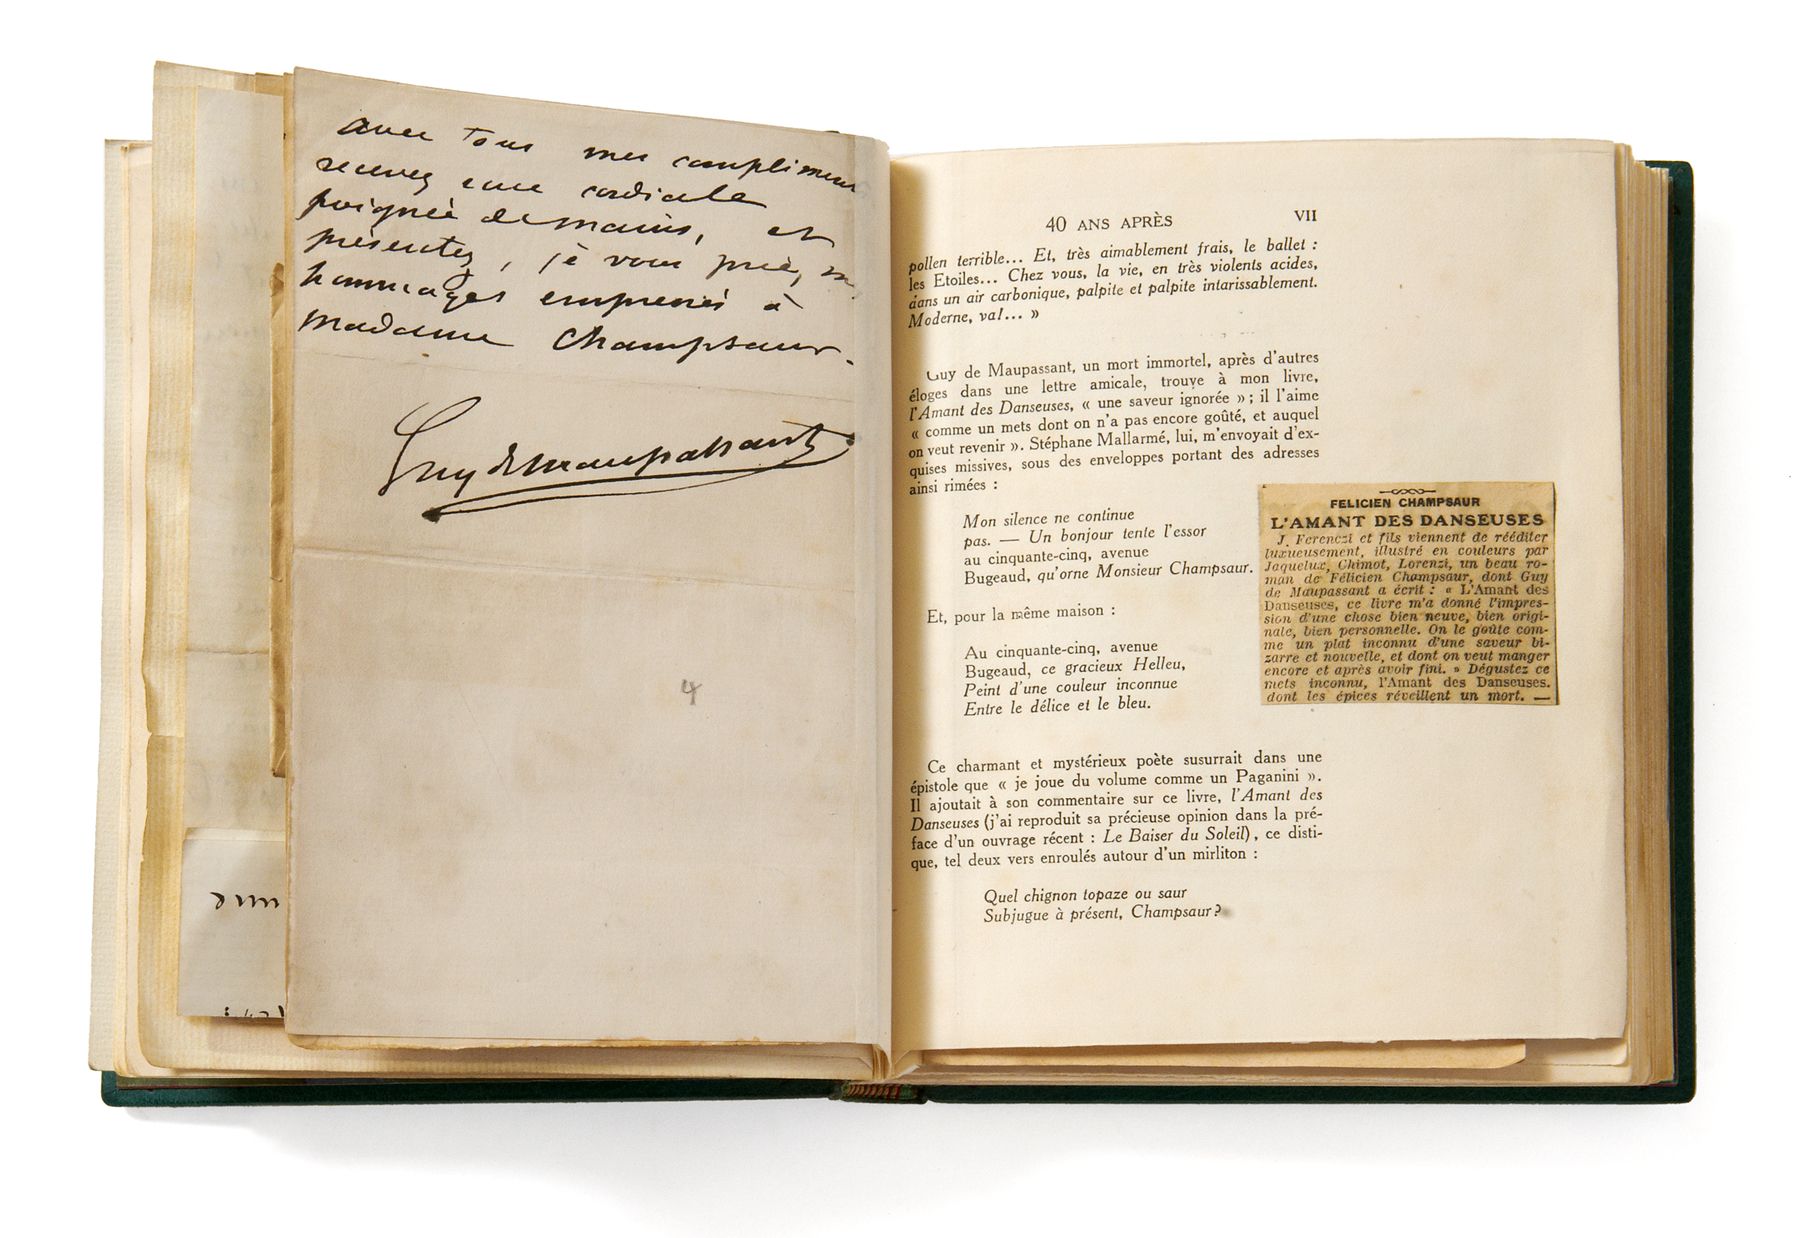 avec tous mes compliments
recevez une cordiale
poignée de mains, et
présentez, je vous prie, m
hommages empressés à
madame Champsaur.
Guy de Maupassant
4
40 ANS APRÈS
VII
pollen terrible... Et, très aimablement frais, le ballet :
les Etoiles... Chez vous, la vie, en très violents acides,
dans un air carbonique, palpite et palpite intarissablement.
Moderne, va!... »
Guy de Maupassant, un mort immortel, après d'autres
éloges dans une lettre amicale, trouve à mon livre,
l'Amant des Danseuses, « une saveur ignorée » ; il l'aime
« comme un mets dont on n'a pas encore goûté, et auquel
on veut revenir ». Stéphane Mallarmé, lui, m'envoyait d'ex-
quises missives, sous des enveloppes portant des adresses
ainsi rimées :
Mon silence ne continue
pas. — Un bonjour tente l'essor
au cinquante-cinq, avenue
Bugeaud, qu'orne Monsieur Champsaur.
Et, pour la même maison :
Au cinquante-cinq, avenue
Bugeaud, ce gracieux Helleu,
Peint d'une couleur inconnue
Entre le délice et le bleu.
Ce charmant et mystérieux poète susurrait dans une
épistole que « je joue du volume comme un Paganini ».
Il ajoutait à son commentaire sur ce livre, l'Amant des
Danseuses (j'ai reproduit sa précieuse opinion dans la pré-
face d'un ouvrage récent : Le Baiser du Soleil), ce disti-
que, tel deux vers enroulés autour d'un mirliton :
Quel chignon topaze ou saur
Subjugue à présent, Champsaur?
FELICIEN CHAMPSAUR
L'AMANT DES DANSEUSES
J. Ferenczi et fils viennent de rééditer
luxueusement, illustré en couleurs par
Jaquelux, Chimot, Lorenzi, un beau ro-
man de Félicien Champsaur, dont Guy
de Maupassant a écrit : « L'Amant des
Danseuses, ce livre m'a donné l'impres-
sion d'une chose bien neuve, bien origi-
nale, bien personnelle. On le goûte com-
me un plat inconnu d'une saveur bi-
zarre et nouvelle, et dont on veut manger
encore et après avoir fini. » Dégustez ce
mets inconnu, l'Amant des Danseuses.
dont les épices réveillent un mort. —